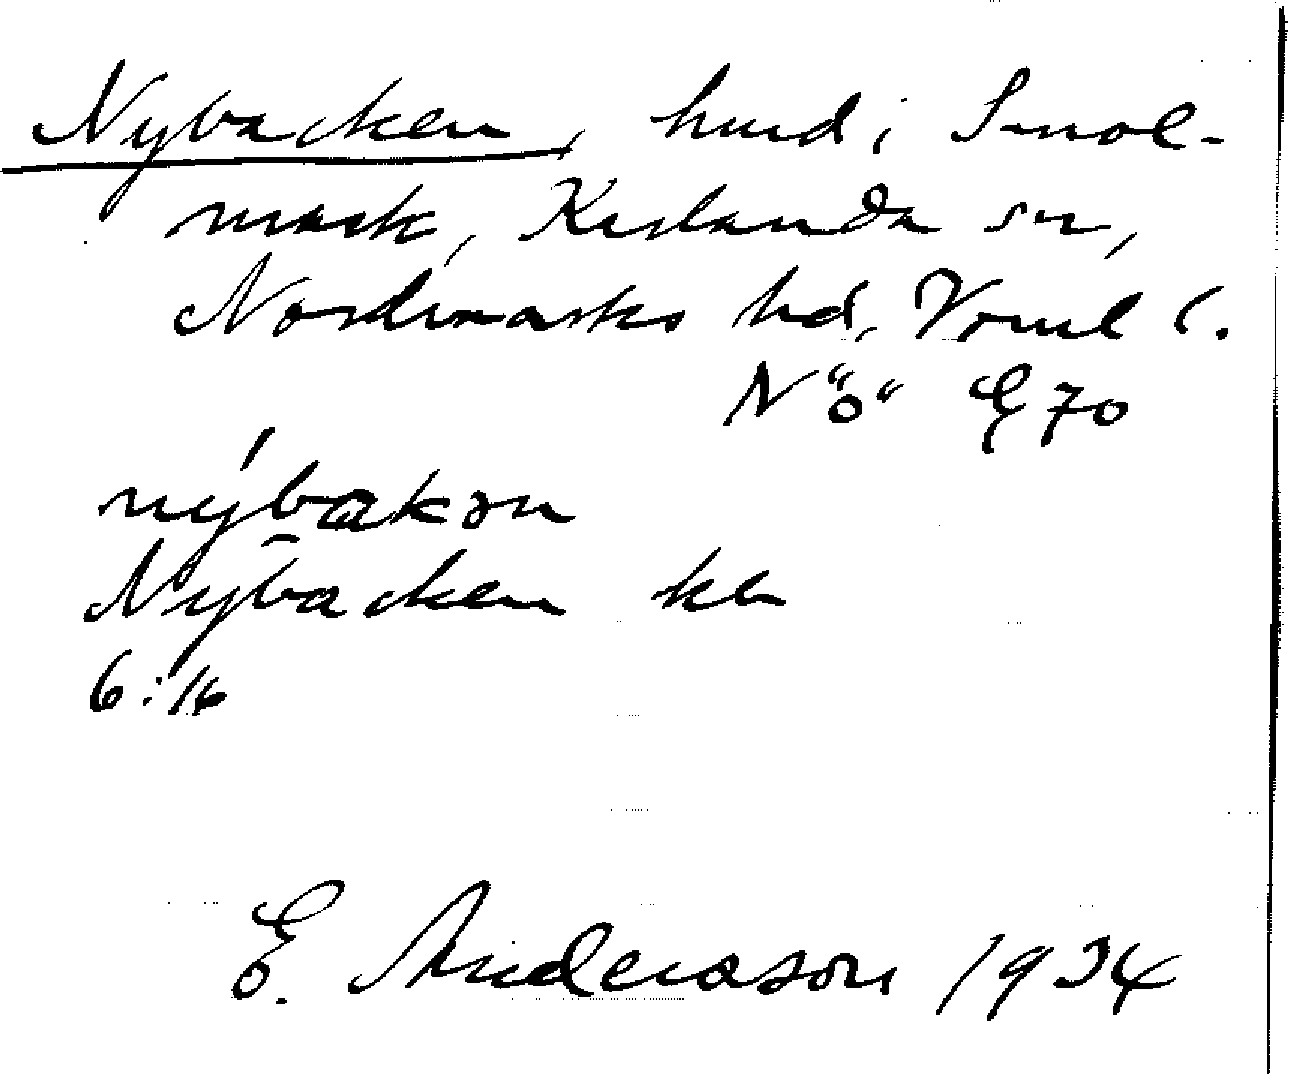 Nybacken, hmd i Smol-
mark, Karlanda sn,
Nordmarks hd, Vrml l.
Nö E70
nýbakən
Nybacken kb
6:16
E. Anderson 1934